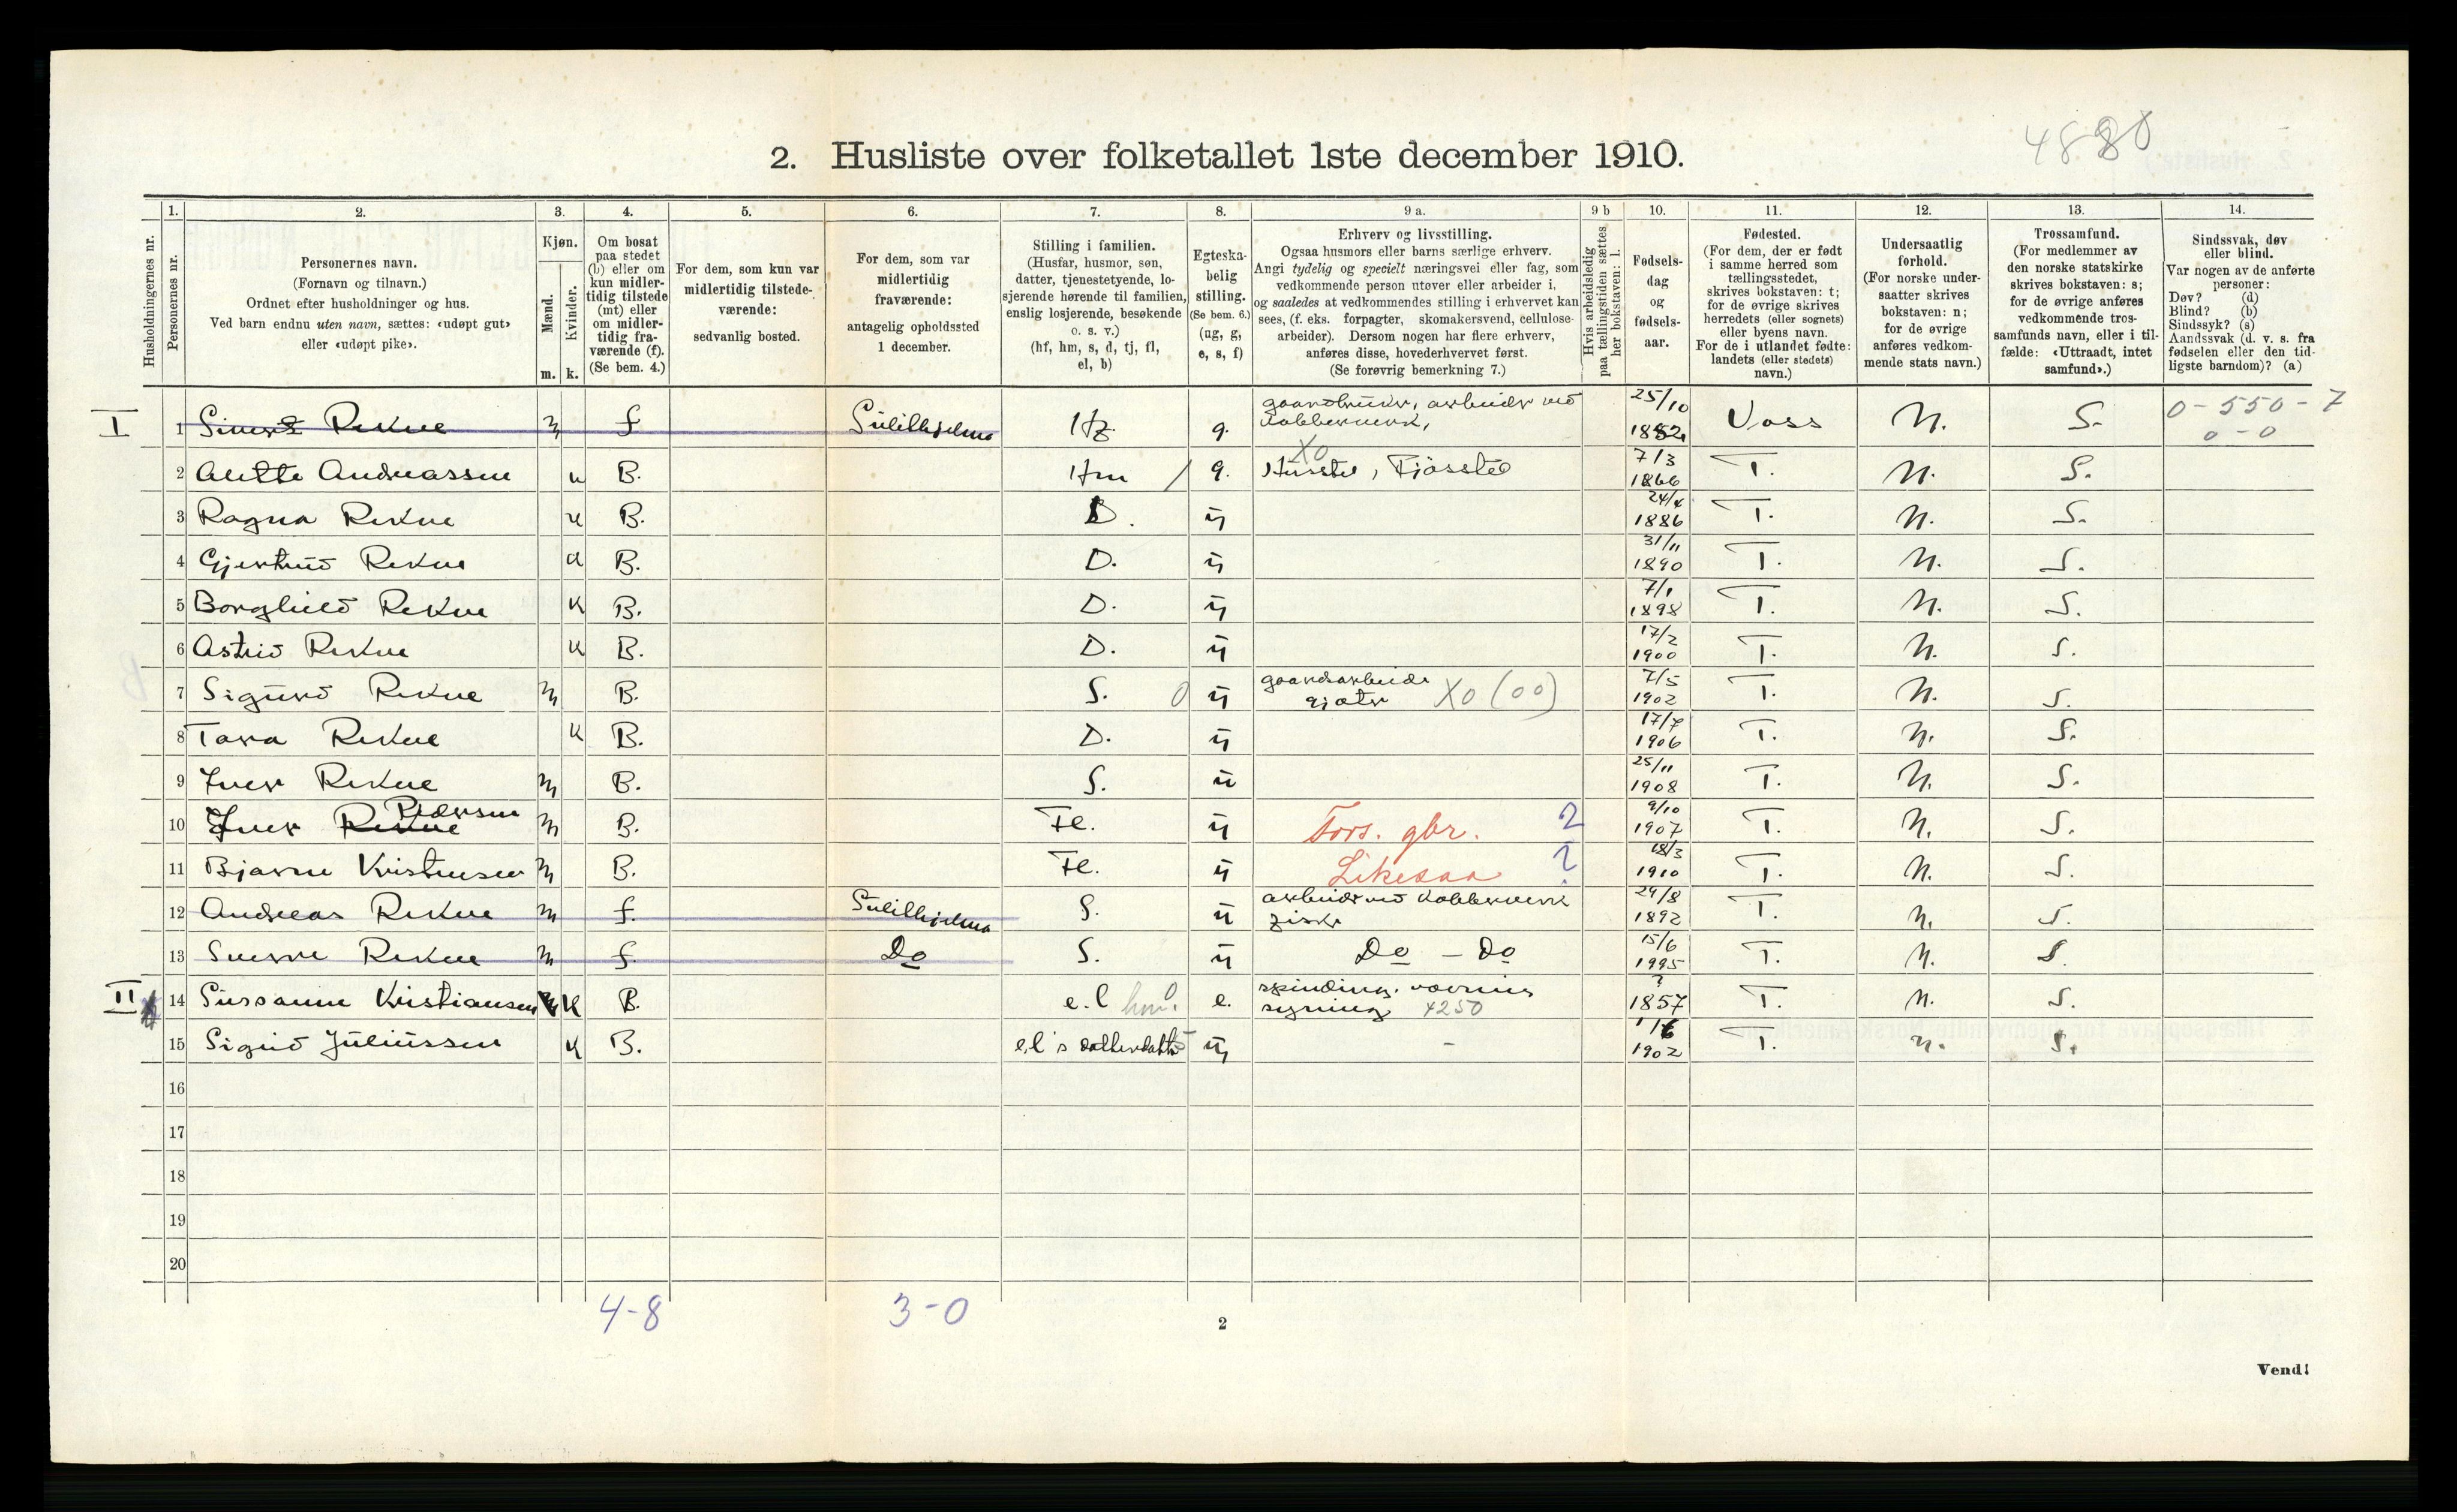 4880
2. Husliste over folketallet 1ste december 1910.
Husholdningernes nr.
1. Personernes nr.
2. Personernes navn. (Fornavn og tilnavn.) Ordnet efter husholdninger og hus. Ved barn endnu uten navn, sættes: «udøpt gut» eller «udøpt pike».
3. Kjøn. Mænd. Kvinder. m. k.
4. Om bosat paa stedet (b) eller om kun midlertidig tilstede (mt) eller om midlertidig fraværende (f). (Se bem. 4.)
5. For dem, som kun var midlertidig tilstedeværende: sedvanlig bosted.
6. For dem, som var midlertidig fraværende: antagelig opholdssted 1 december.
7. Stilling i familien. (Husfar, husmor, søn, datter, tjenestetyende, losjerende hørende til familien, enslig losjerende, besøkende o. s. v.) (hf, hm, s, d, tj, fl, el, b)
8. Egteskabelig stilling. (Se bem. 6.) (ug, g, e, s, f)
9 a. Erhverv og livsstilling. Ogsaa husmors eller barns særlige erhverv. Angi tydelig og specielt næringsvei eller fag, som vedkommende person utøver eller arbeider i, og saaledes at vedkommendes stilling i erhvervet kan sees, (f. eks. forpagter, skomakersvend, cellulosearbeider). Dersom nogen har flere erhverv, anføres disse, hovederhvervet først. (Se forøvrig bemerkning 7.)
9 b Hvis arbeidsledig paa tællingstiden sættes her bokstaven: l.
10. Fødselsdag og fødselsaar.
11. Fødested. (For dem, der er født i samme herred som tællingsstedet, skrives bokstaven: t; for de øvrige skrives herredets (eller sognets) eller byens navn. For de i utlandet fødte: landets (eller stedets) navn.)
12. Undersaatlig forhold. (For norske undersaatter skrives bokstaven: n; for de øvrige anføres vedkommende stats navn.)
13. Trossamfund. (For medlemmer av den norske statskirke skrives bokstaven: s; for de øvrige anføres vedkommende trossamfunds navn, eller i tilfælde: «Uttraadt, intet samfund».)
14. Sindssvak, døv eller blind. Var nogen av de anførte personer: Døv? (d) Blind? (b) Sindssyk? (s) Aandssvak (d. v. s. fra fødselen eller den tidligste barndom)? (a)
I 1 Sivert Rekve m f Sulitelma Hf. g. gaardbruker, arbeider ved kobberverk, 25/10 1852 Voss N. S. 0-550-7 0-0
2 Alette Andreassen k B. Hm / g. Husstel, Fjösstel X0 7/3 1866 T. N. S.
3 Ragna Rekve k B. D. ü 24/4 1886 T. N. S.
4 Gjertrud Rekve k B. D. ü 31/11 1890 T. N. S.
5 Borghild Rekve k B. D. ü 7/1 1898 T. N. S.
6 Astrid Rekve k B. D. ü 17/2 1900 T. N. S.
7 Sigurd Rekve m B. S. 0 ü gaardsarbeide gjæter X0 (00) 7/5 1902 T. N. S.
8 Tora Rekve k B. D. ü 17/7 1906 T. N. S.
9 Iver Rekve m B. S. ü 25/11 1908 T. N. S.
10 Iver Rekve Pedersen m B. Fl. ü Fors. gbr. 2 9/10 1907 T. N. S.
11 Bjarne Kristensen m B. Fl. ü Likesaa ? 18/3 1910 T. N. S.
12 Andreas Rekve m f. Sulitelma S. ü arbeider ved kobberverk fisker 29/8 1892 T. N. S.
13 Sverre Rekve m f. Do S. ü Do - Do 15/6 1995 T. N. S.
II 14 Sussanne Kristiansen k B. e.l hm. 0 e. spinding, vævning syning 4250 ? 1857 T. N. S.
15 Sigrid Juliussen k B. e.l's datterdatter ü - 1/6 1902 T. N. S.
16
17
18
19
20
4-8
3-0
2
Vend!